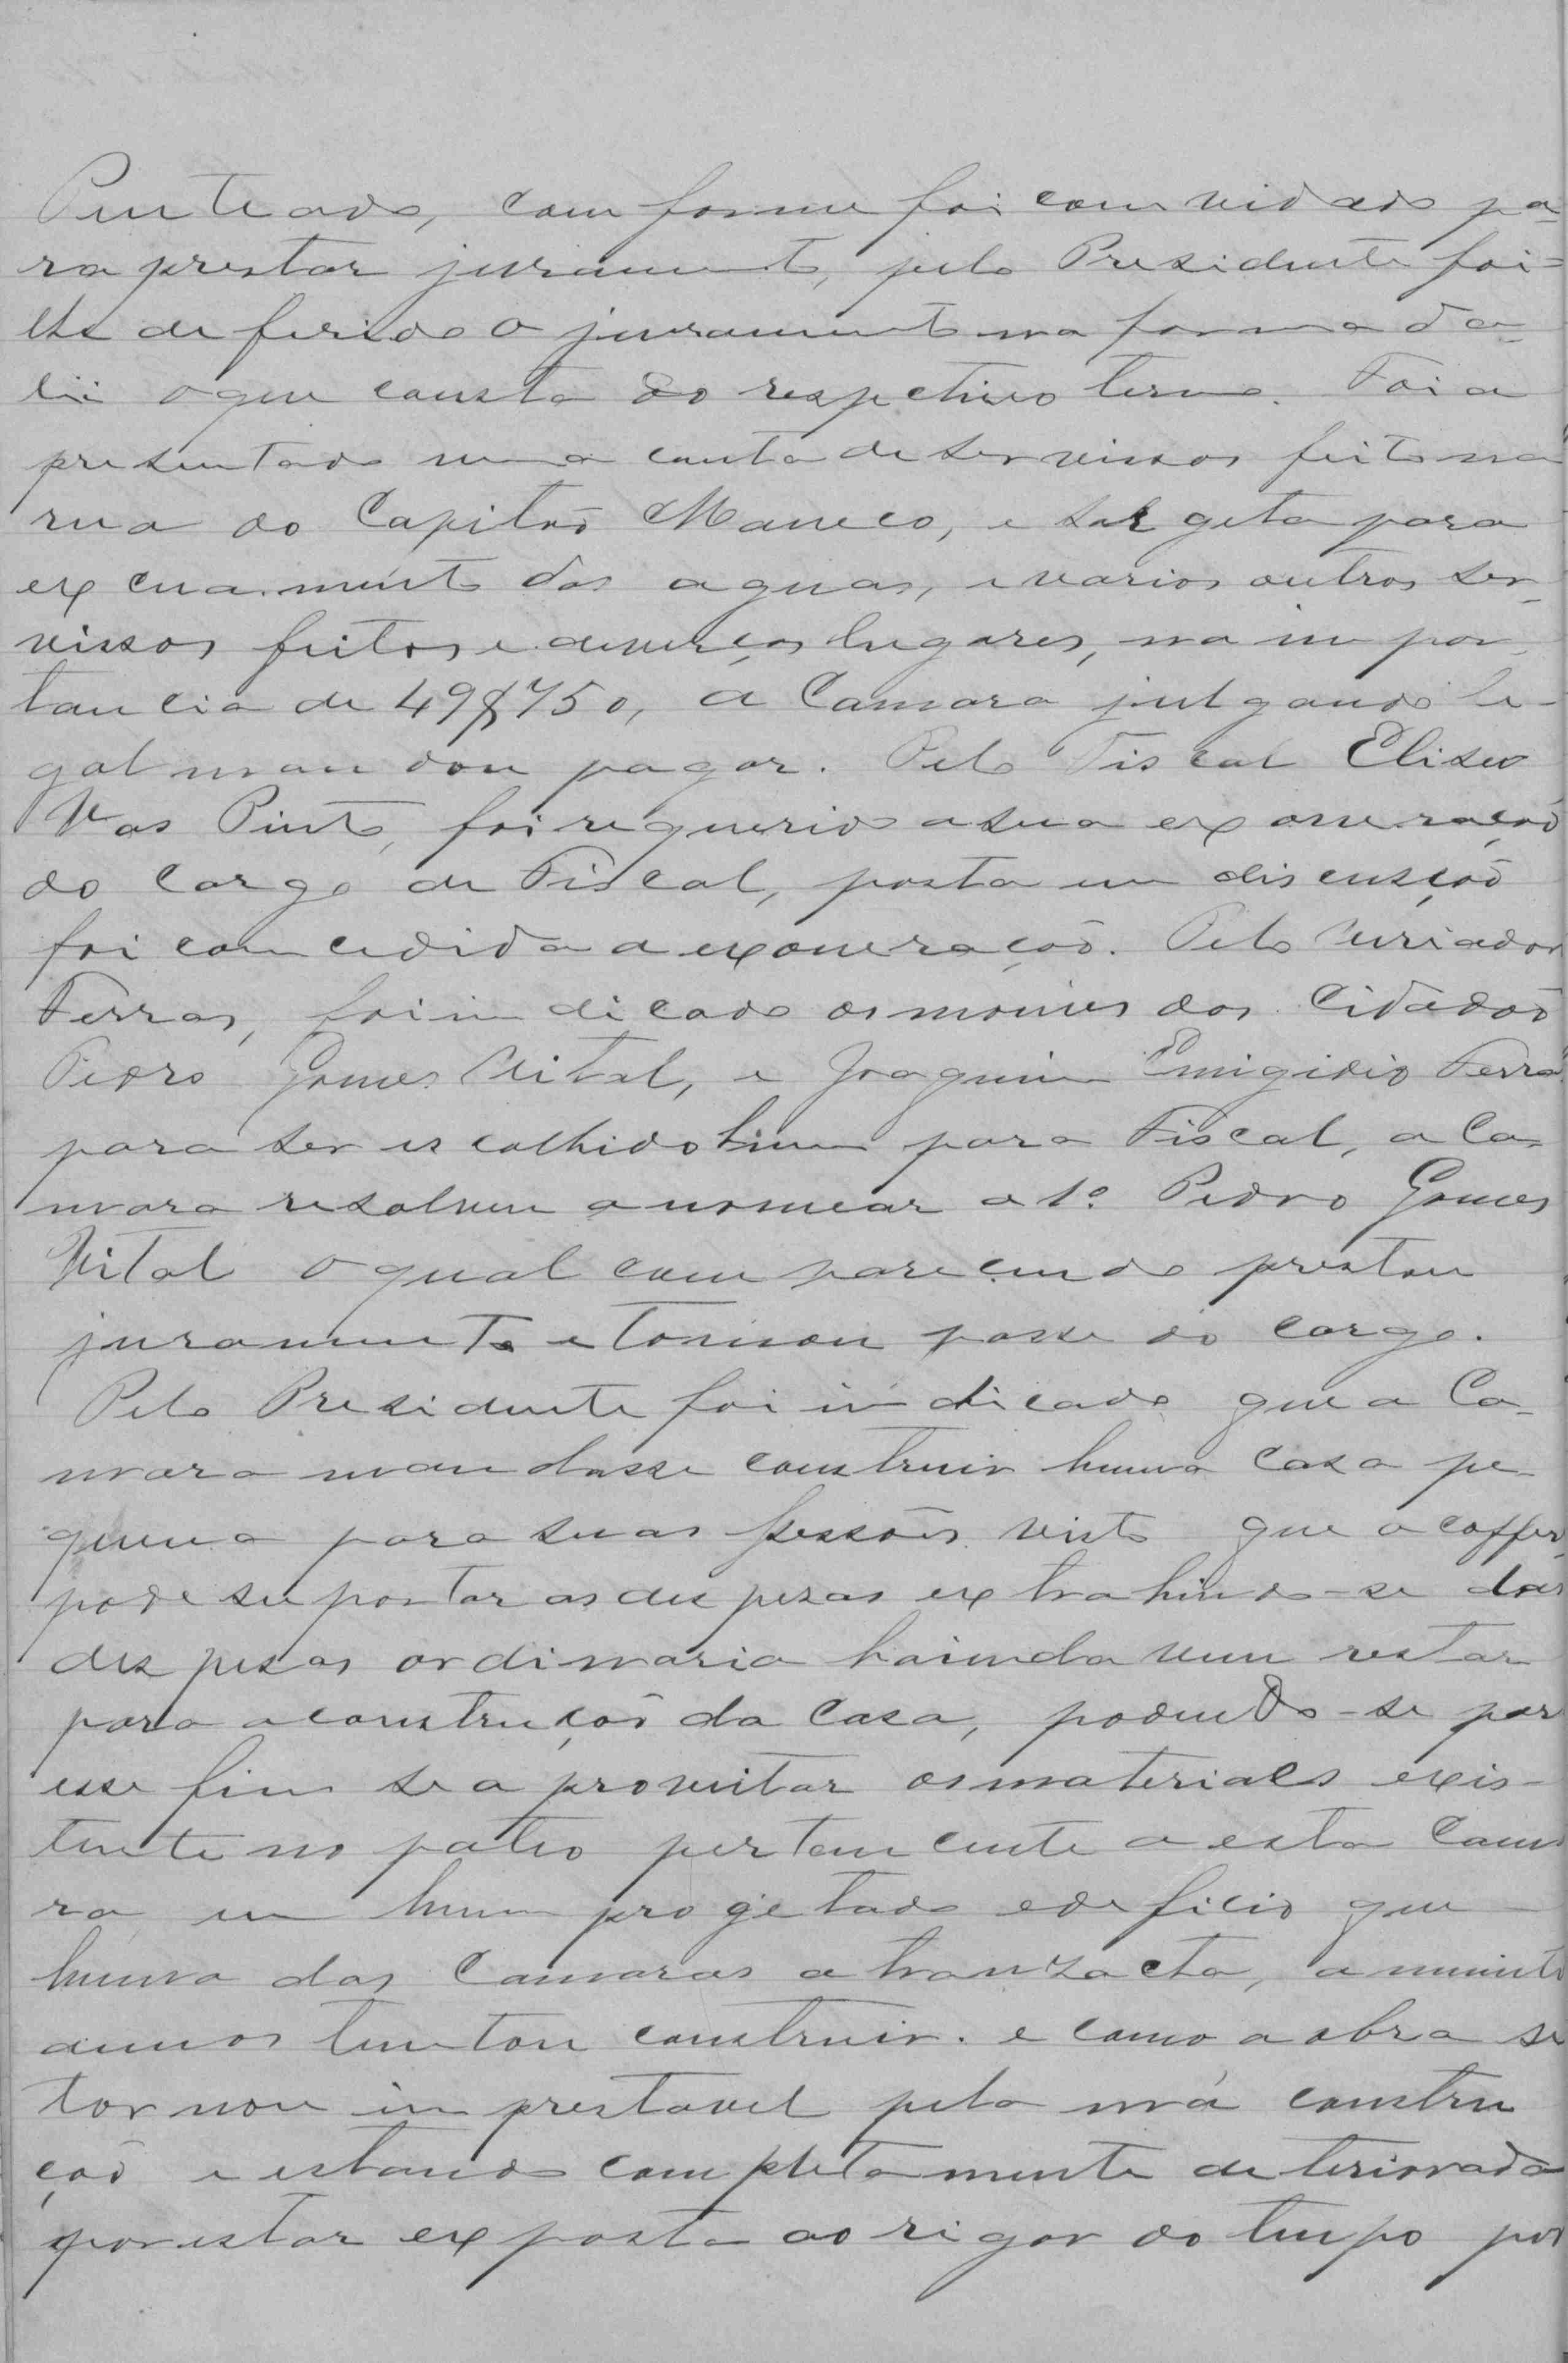 Penteado, comforme foi comvidado pa-
ra prestar juramento, pelo Presidente foi=
lhe deferido o juramento na forma da-
lei oque consta do respectivo termo. Foi a
presentado uma conta de servissos feito na
rua do Capitaõ Maneco, e sargeta para
excuamento das aguas, e varios outros ser-
vissos feitos e deverços lugares, na impor-
tancia de 49$750, a Camara julgando le-
gal mandou pagar. Pelo Fiscal Eliseo
Vas Pinto, foi requerido a sua exoneraçaõ
do cargo de Fiscal, posta em discusçaõ
foi comcedida a exoneraçaõ. Pelo Veriador
Ferras, foi indicado os nomes dos Cidadaõs
Pedro Gomes Vital, e Joaquim Emigidio Ferra
para ser escolhido hum para Fiscal, a Ca-
mara resolveu a nomear o 1º Pedro Gomes
Vital o qual comparecendo prestou
juramento e tomou posse do cargo.
Pelo Presidente foi indicado que a Ca-
mara mandasse construir huma casa pe-
quena para suas sessões visto que o coffer,
pode supontar as despezas extrahindo-se das
despesas ordinaria hainda vem restar
para a construçaõ da casa, podendo-se par
esse fim se aproveitar os materiaes exis-
tente no pateo pertencente a esta Cama
ra, em hum progetado edeficio que
huma das Camaras a tranzacta, a muinto
annos tentou construir. e como a obra se
tornou imprestavel pela má constru
çaõ e estando completamente deteriorada
por estar exposta ao rigor do tempo por